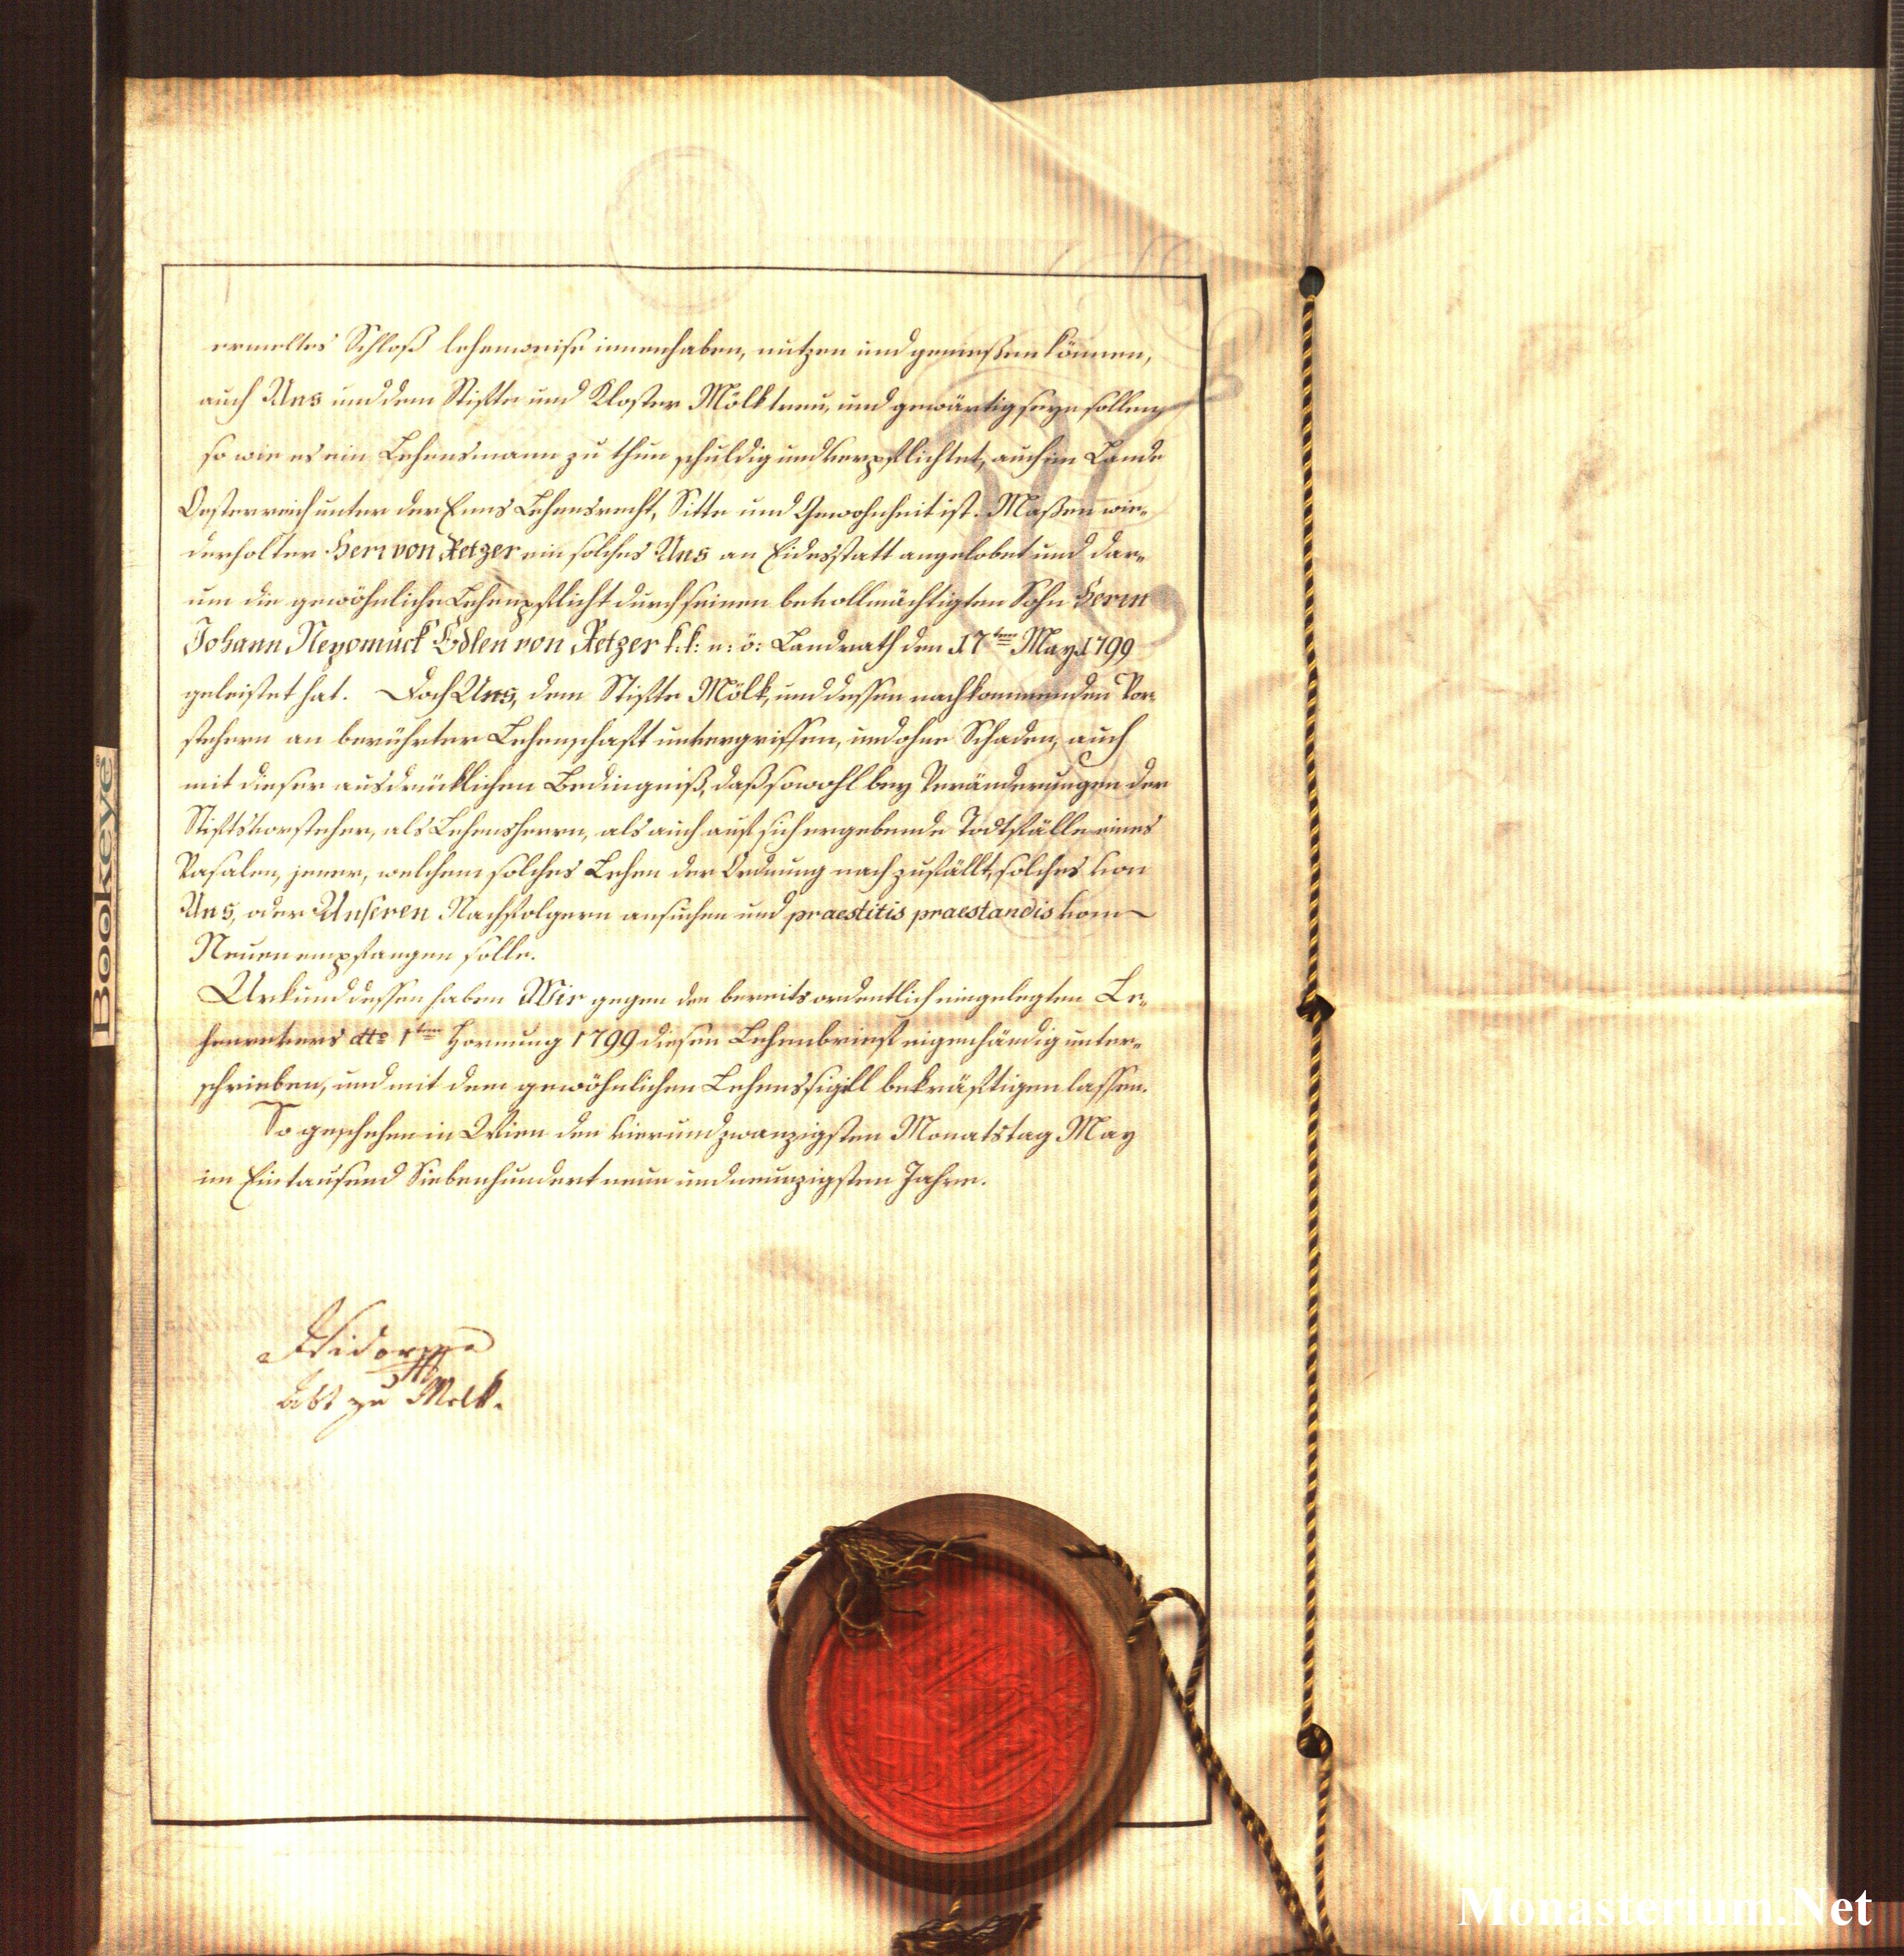 ermeltes Schloß lehenweise innenhaben, nutzen und genießen können,
auch Uns und dem Stifte und Kloster Mölk treu, und gewärtig seyn sollen,
so wie es ein Lehensmann zu thun schuldig und verpflichtet, auch im Lande
Oesterreich unter der Enns Lehensrecht, Sitte und Gewohnheit ist. Maßen wie„
derholter Herr von Retzer ein solches Uns an Eidesstatt angelobet und dar„
um die gewöhnliche Lehenpflicht durch seinen bevollmächtigten Sohn Herrn
Johann Nepomuck Edlen von Retzer k: k: n: ö: Landrath den 17ten May 1799
geleistet hat. Doch Uns, dem Stifte Mölk, und dessen nachkommenden Vor„
stehern an berührter Lehenschaft unvergriffen, und ohne Schaden, auch
mit dieser ausdrücklichen Bedingniß, daß sowohl bey Veränderungen der
Stiftsvorsteher, als Lehensherrn, als auch auf sich ergebende Todtfälle eines
Vasalen, jener, welchem solches Lehen der Ordnung nach zufällt, solches von
Uns, oder Unseren Nachfolgern ansuchen und praestitis praestandis vom
Neuen empfangen solle.
Urkund dessen haben Wir gegen den bereits ordentlich eingelegten Le„
henrevers dto 1ten Hornung 1799 diesen Lehenbrief eigenhändig unter„
schrieben, und mit dem gewöhnlichen Lehenssigill bekräftigen lassen.
So geschehen in Wien den vierundzwanzigsten Monatstag May
im Eintausend Siebenhundert neun und neunzigsten Jahre.
Isidor
Abt zu Melk.
Bookeye
Monasterium.Net